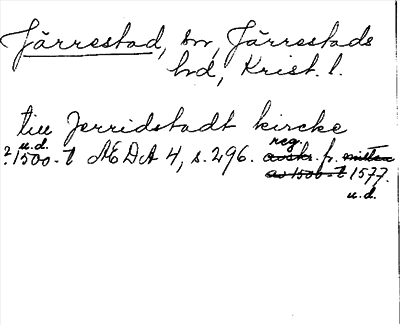 Järrestad, sn, Järrestads
hd, Krist. l.
till Jerridstadt kircke
u.d. reg.
? 1500-t ÆDA 4, s. 296. avskr. fr. mitten
av 1500-t 1577.
u.d.